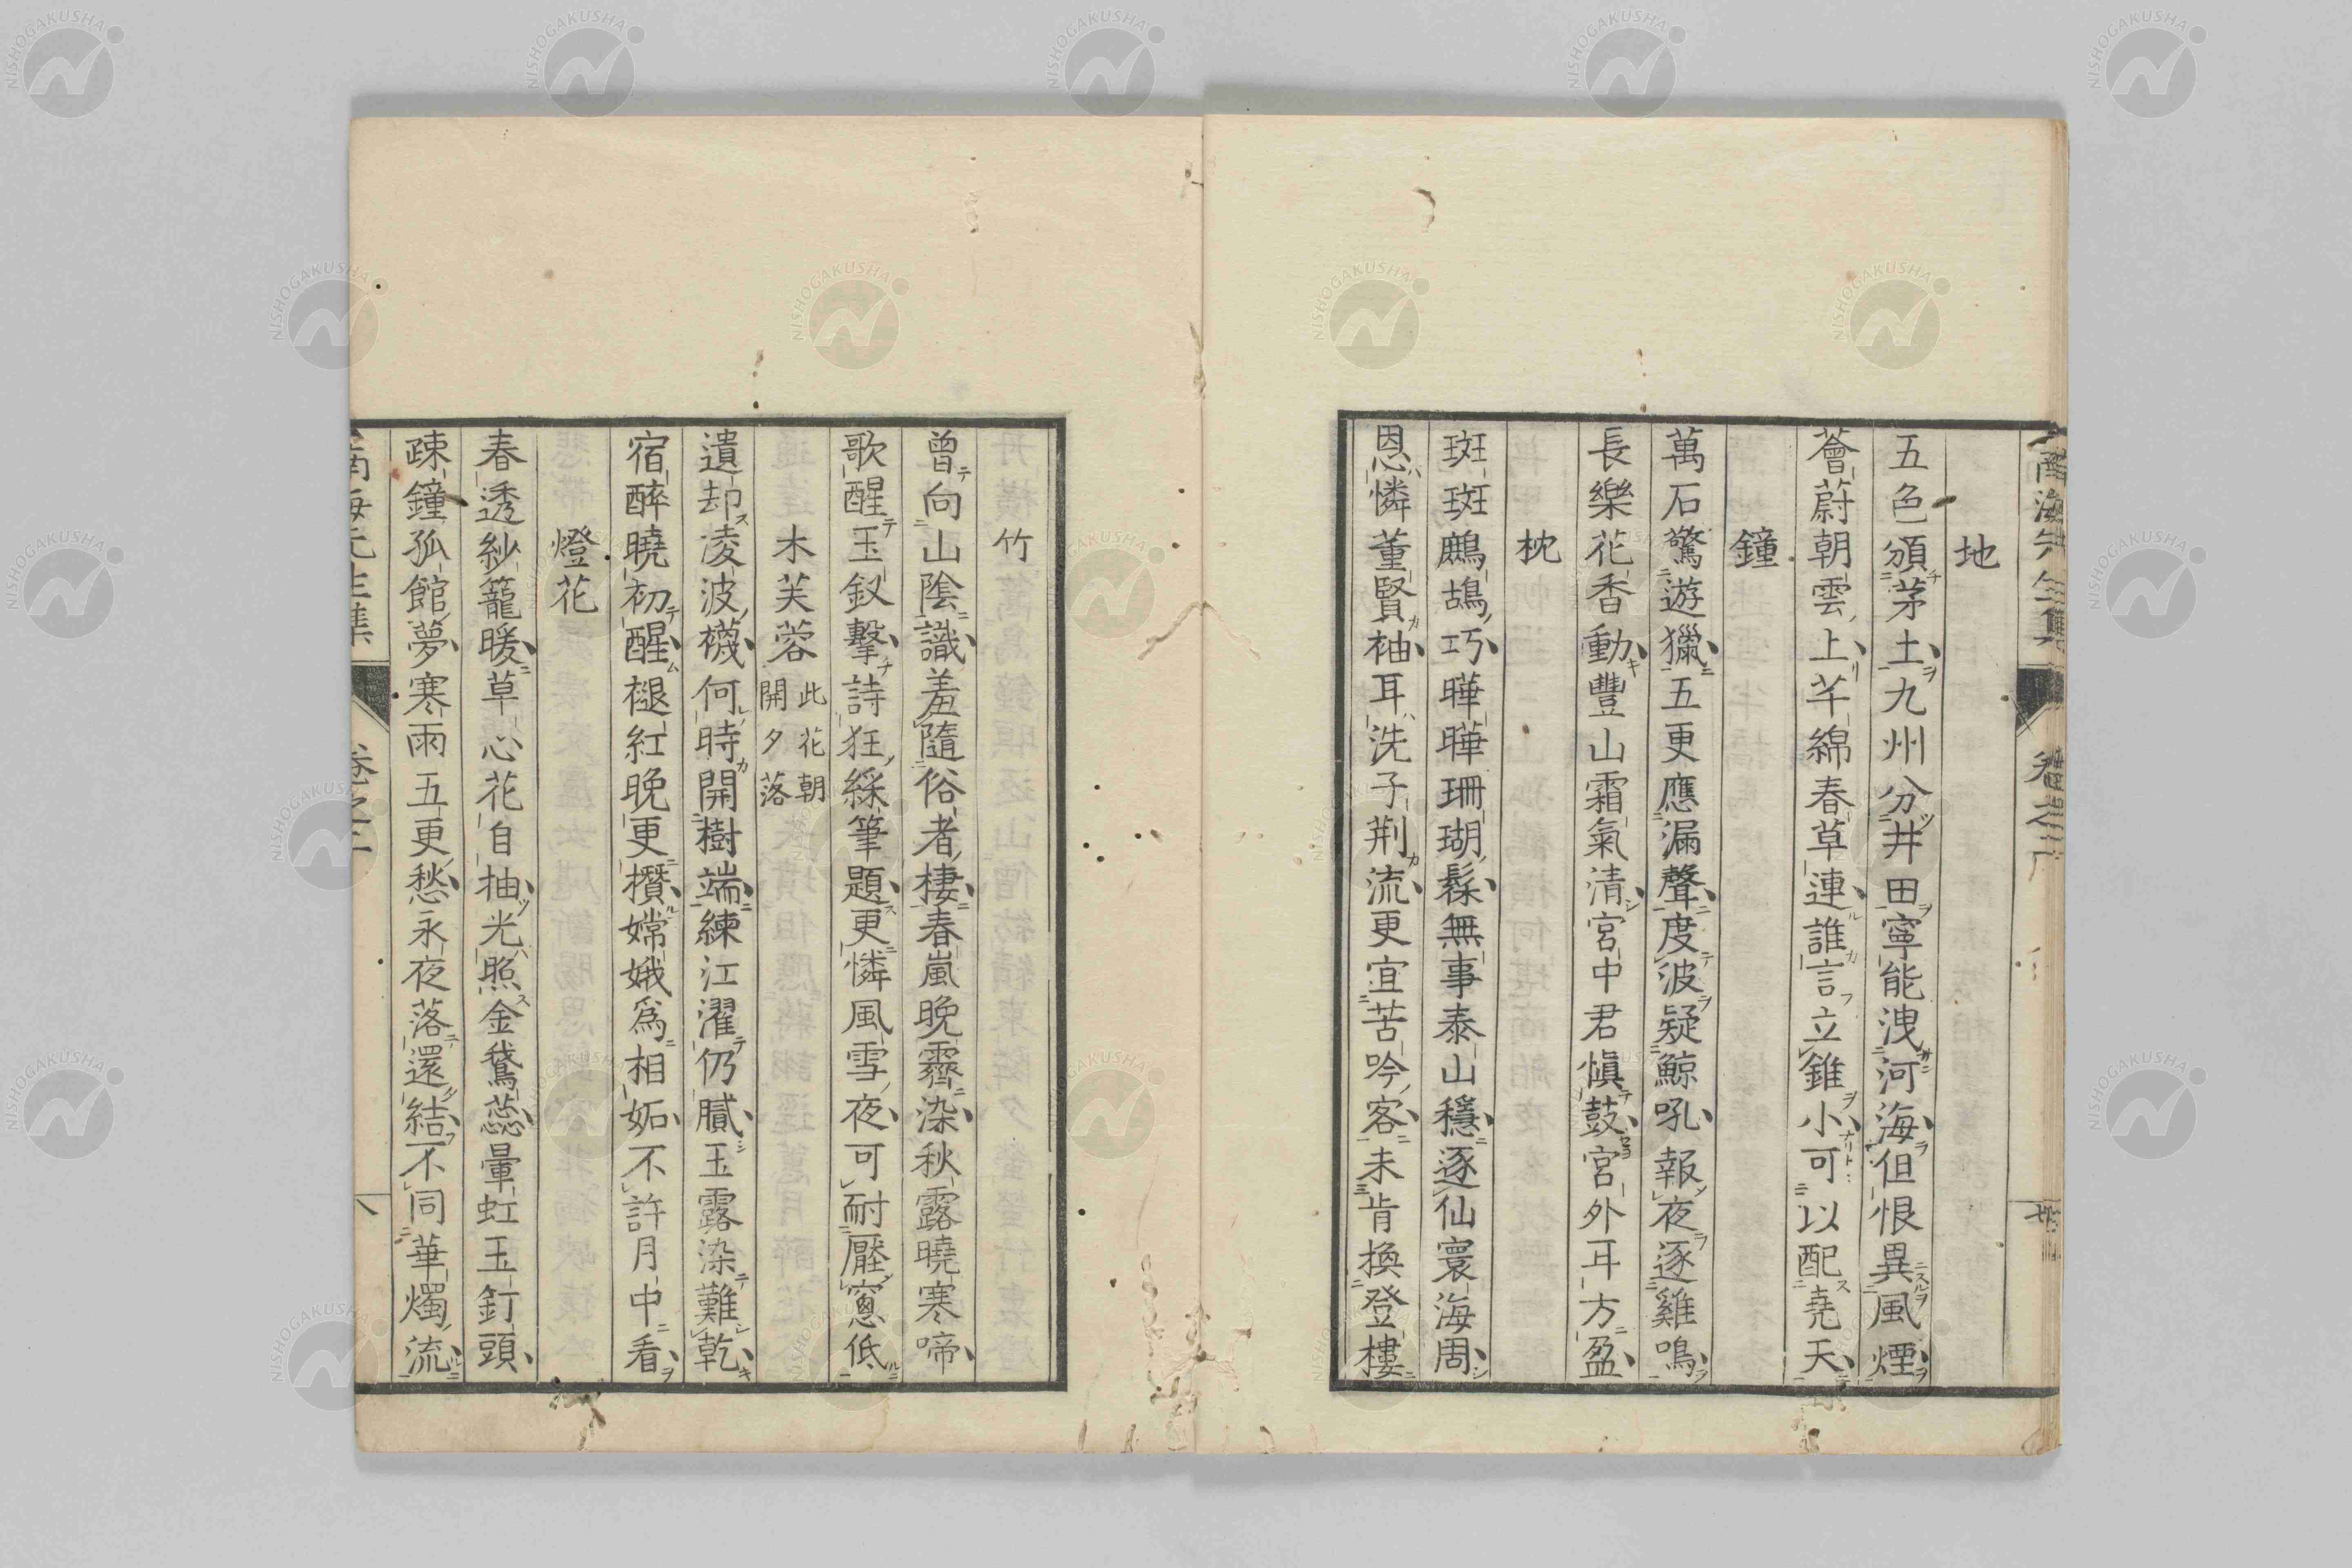 地
五色頒茅土九州分井田寧能洩河海但恨異風煙
薈蔚朝雲上芊綿春草連誰言立錐小可以配堯天
鐘
萬石驚遊獵五更應漏聲度波疑鯨吼報夜逐雞鳴
長樂花香動豐山霜氣清宮中君愼鼓宮外耳方盈
枕
斑斑鷓鴣巧曄曄珊瑚鬆無事泰山穩逐仙寰海周
恩憐董賢袖耳洗子荆流更宜苦吟客未肯換登樓
竹
曾向山陰識羞隨俗者棲春嵐晩霽染秋露曉寒啼
歌醒玉釵擊詩狂綵筆題更憐風雪夜可耐壓窻低
木芙蓉 此花朝開夕落
遺却凌波襪何時開樹端練江濯仍膩玉露染難乾
宿醉曉初醒褪紅晩更攢嫦娥爲相妬不許月中看
燈花
春透紗籠暖草心花自抽光照金鵞蕊暈虹玉釘頭
疎鐘孤館夢寒雨五更愁永夜落還結不同華燭流
南海先生集
卷之二
八